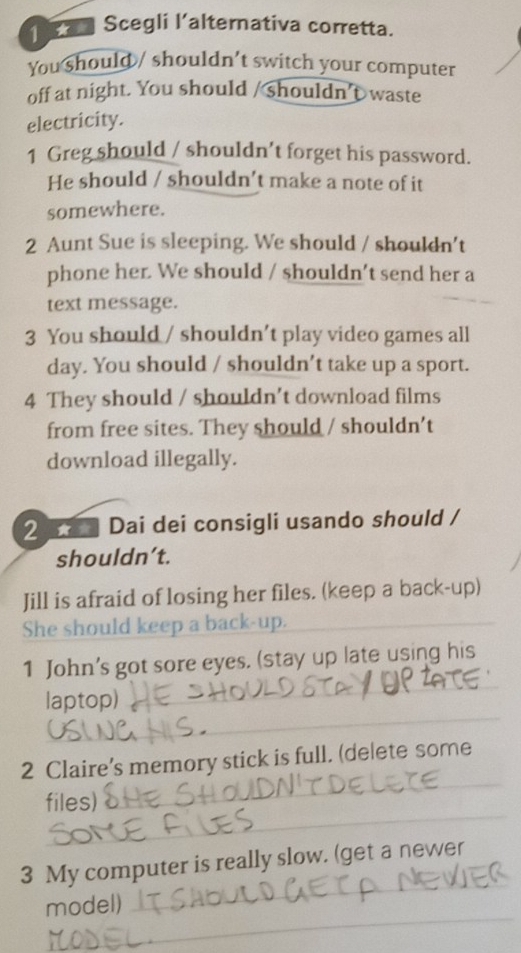 1 Scegli l'alternativa corretta.
You should / shouldn't switch your computer
off at night. You should / shouldn't waste
electricity.
1 Greg should / shouldn't forget his password.
He should / shouldn't make a note of it
somewhere.
2 Aunt Sue is sleeping. We should / shouldn't
phone her. We should / shouldn't send her a
text message.
3 You should / shouldn't play video games all
day. You should / shouldn't take up a sport.
4 They should / shouldn't download films
from free sites. They should / shouldn't
download illegally.
2 Dai dei consigli usando should /
shouldn't.
Jill is afraid of losing her files. (keep a back-up)
She should keep a back-up.
1 John's got sore eyes. (stay up late using his
laptop) HE SHOULD STAY UP LATE
USING HIS.
2 Claire's memory stick is full. (delete some
files) SHE SHOUDN'T DELETE
SOME FILES
3 My computer is really slow. (get a newer
model) IT SHOULD GET A NEWER
MODEL.